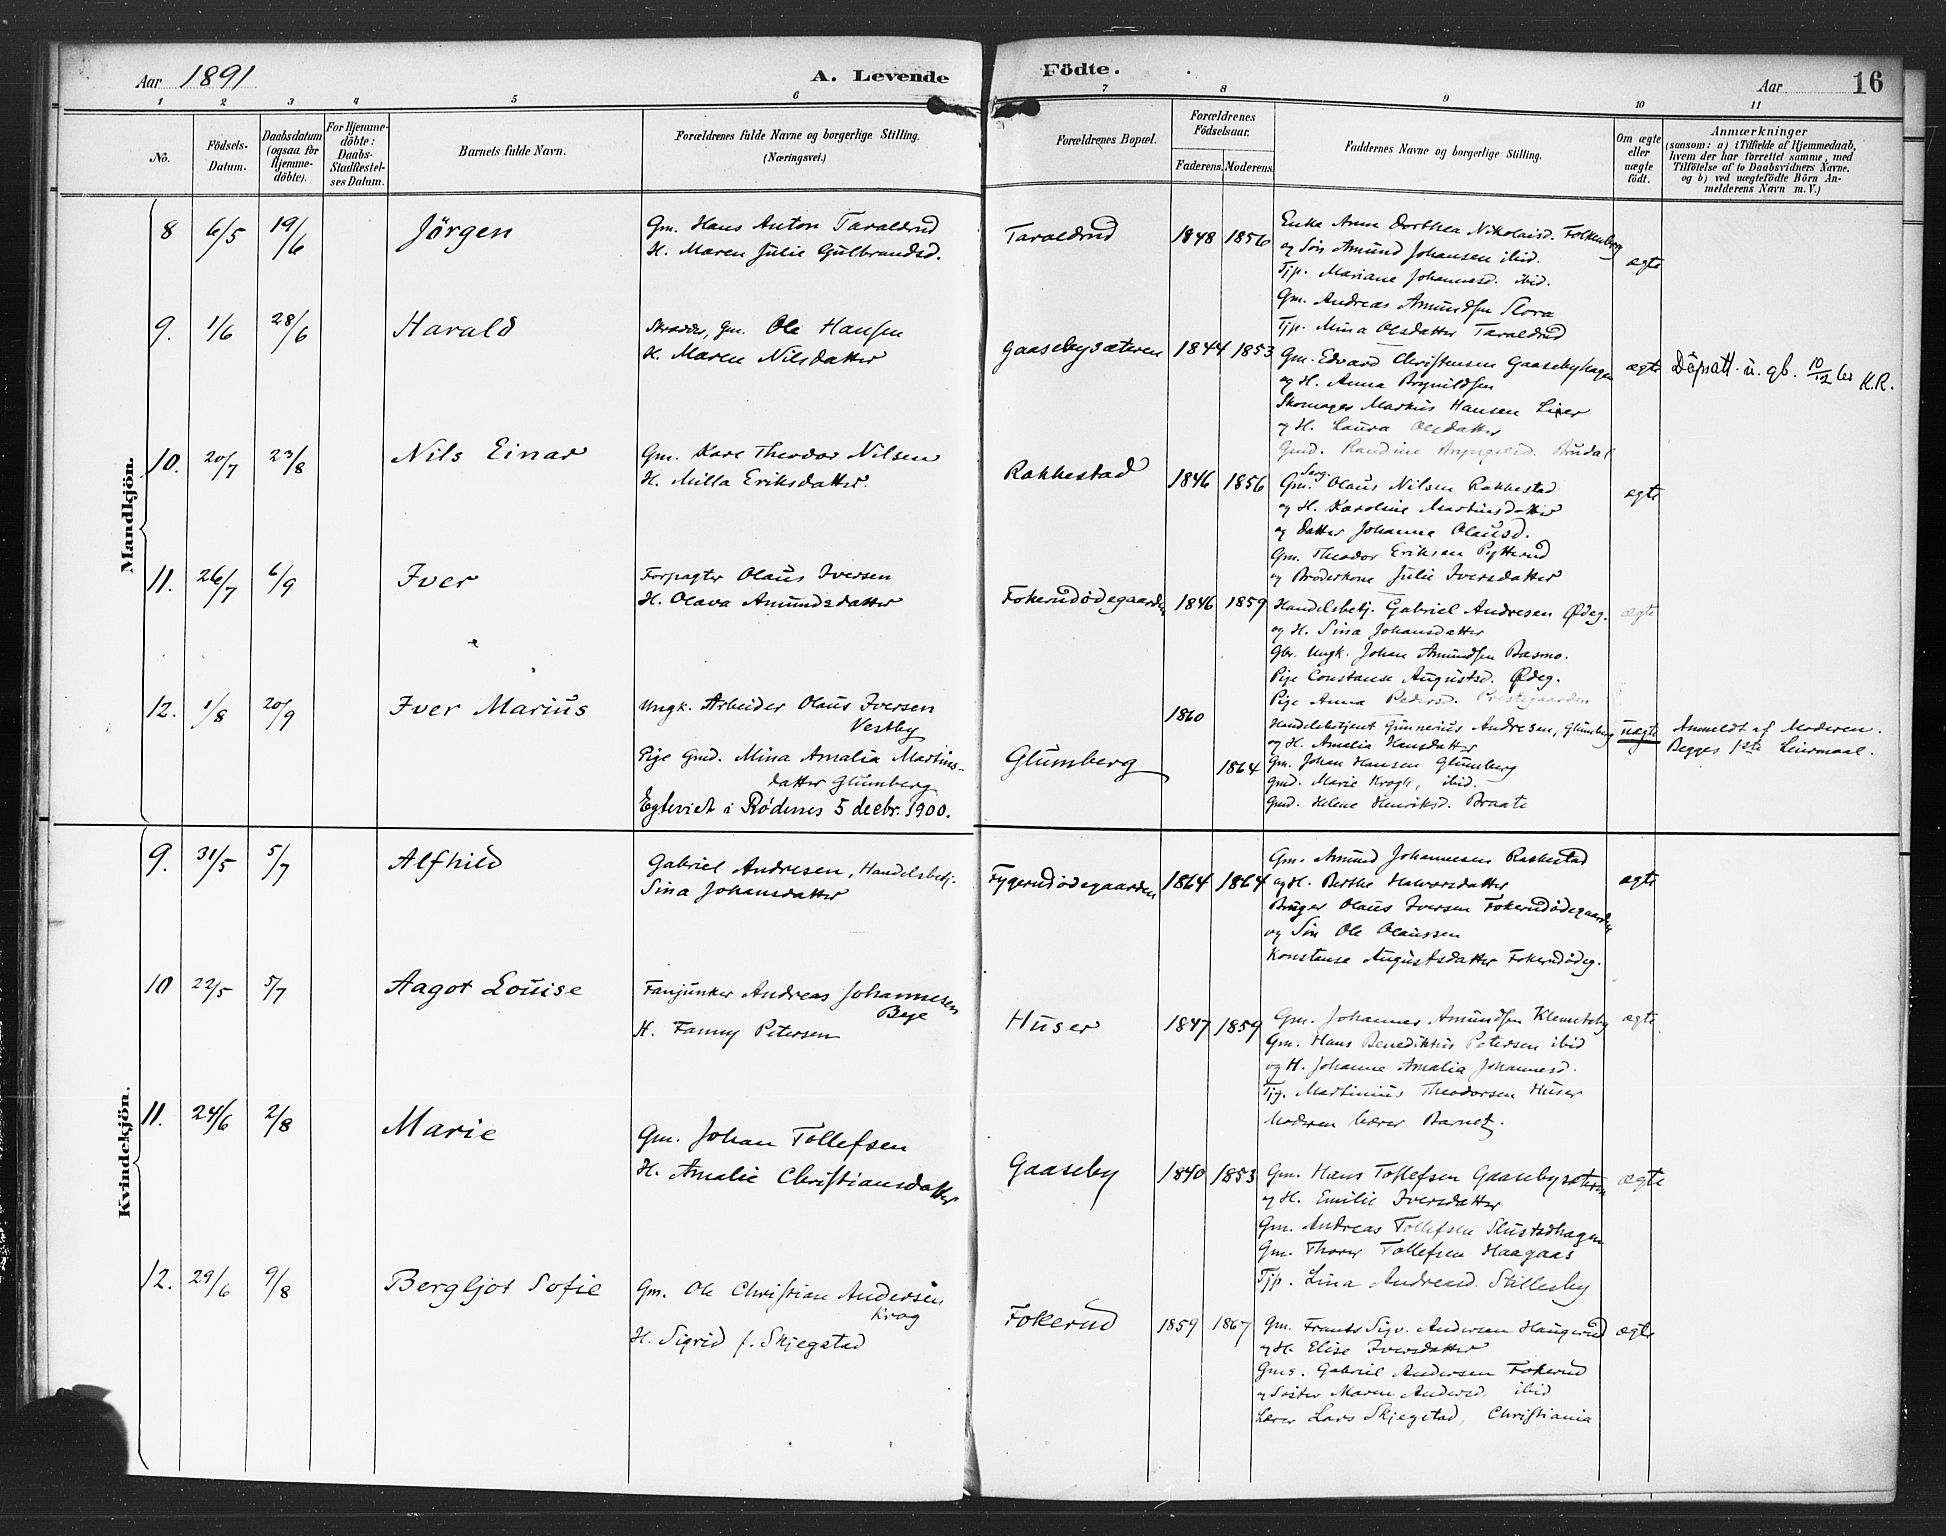 Aar 1891 A. Levende Födte. Aar 16
1 2 3 4 5 6 7 8 9 10 11
No.
Födsels-Datum.
Daabsdatum (ogsaa for Hjemme-döbte).
For Hjemme-döbte: Daabs-Stadfestel-ses Datum.
Barnets fulde Navn.
Forældrenes fulde Navne og borgerlige Stilling.
(Næringsvei.)
Forældrenes Bopæl.
Forældrenes Födselsaar.
Faderens. Moderens.
Faddernes Navne og borgerlige Stilling.
Om ægte eller uægte födt.
Anmærkninger
(saasom: a) i Tilfælde af Hjemmedaab,
hvem der har forrettet samme, med
Tilföielse af to Daabsvidners Navne.
og b) ved uægtefödte Börn An-
melderens Navn m. V.)
Mandkjön.
8 6/5 19/6 Jörgen
Gm. Hans Anton Taraldrud
H. Maren Julie Gulbrandsd.
Taraldrud 1848 1856
Enke Anne Dorthea Nikolaisd. Folkenborg
og Sön Amund Johansen ibid.
Tjp. Mariane Johannesd. ibid.
Gm. Andreas Amundsen Slora
Tjp. Mina Olsdatter Taraldrud
ægte
9. 1/6 28/6 Harald
Skrædder, Gm. Ole Hansen
H. Maren Nilsdatter
Gaasebysæteren 1844 1853
Gm. Edvard Christensen Gaasebyhagen
og H. Anna Brynildsen
Skomager Markus Hansen Lier
og H. Laura Olsdatter
Gmd. Randine Bryngelsd. Brudal
ægte
Döpsatt. u. gb. 10/12 K.R.
10. 20/7 23/8 Nils Einar
Gm. Karl Theodor Nilsen
H. Milla Eriksdatter.
Rakkestad 1846 1856
Sarg.
Gm. Olaus Nilsen Rakkestad
og H. Karoline Martinsdatter
og Datter Johanne Olausd.
Gm. Theodor Eriksen Pytterud
og Broderkone Julie Iversdatter
ægte
11. 26/7 6/9 Iver
Forpagter Olaus Iversen
H. Olava Amundsdatter
Fokerudödegaarden 1846 1859
Handelsbetj. Gabriel Andresen Ødeg.
og H. Sina Johansdatter
Gbr. Ungk. Johan Amundsen Basmo.
Pige Constanse Augustsd. Ødeg.
Pige Anna Pedersd. Prestegaarden
ægte
12. 1/8 20/9 Iver Marius
Ungk. Arbeider Olaus Iversen
Vestby
Pige Gmd. Mina Amalia Martins-
datter Glumberg
Egteviet i Rødenes 5 decbr. 1900.
Glumberg 1860 1864
Handelsbetjent Gunnerius Andresen, Glumberg
og H. Amalia Hansdatter
Gm. Johan Hansen Glumberg
Gmd. Marie Krogh, ibid.
Gmd. Helene Henriksd. Braate
uægte
Anmeldt af Moderen.
Begges 1ste Leiermaal.
Kvindekjön.
9. 31/5 5/7 Alfhild
Gabriel Andresen, Handelsbetj.
Sina Johansdatter
Fygerudödegaarden 1864 1864
Gm. Amund Johannesen Rakkestad
og H. Berthe Halvorsdatter
Bruger Olaus Iversen Fokerudödegaarden
og Sön Ole Olaussen
Konstanse Augustsdatter Fokerudödeg.
ægte
10 22/5 5/7 Aagot Louise
Fanjunker Andreas Johannesen
Bye
H. Fanny Petersen
Huser 1847 1859
Gm. Johannes Amundsen Klemetsby
Gm. Hans Benediktus Petersen ibid
og H. Johanne Amalia Johannesd.
Tjg. Martinius Theodorsen Huser
Moderen bærer Barnet.
ægte
11. 24/6 2/8 Marie
Gm. Johan Tollefsen
H. Amalie Christiansdatter
Gaaseby 1840 1853
Gm. Hans Tollefsen Gaasebysæteren
og H. Emilie Iversdatter
Gm. Andreas Tollefsen Slustadhagen
Gm. Thorer Tollefsen Haagaas
Tjp. Lina Andreasd. Stillesby
ægte
12. 29/6 9/8 Bergljot Sofie
Gm. Ole Christian Andersen
Krog
H. Sigrid f. Skjegstad
Fokerud 1859 1867
Gm. Frants Sigv. Andersen Haugerud
og H. Elise Iversdatter
Gms. Gabriel Andersen Fokerud
og Söster Maren Andersd. ibid
Lærer Lars Skjegstad, Christiania
ægte